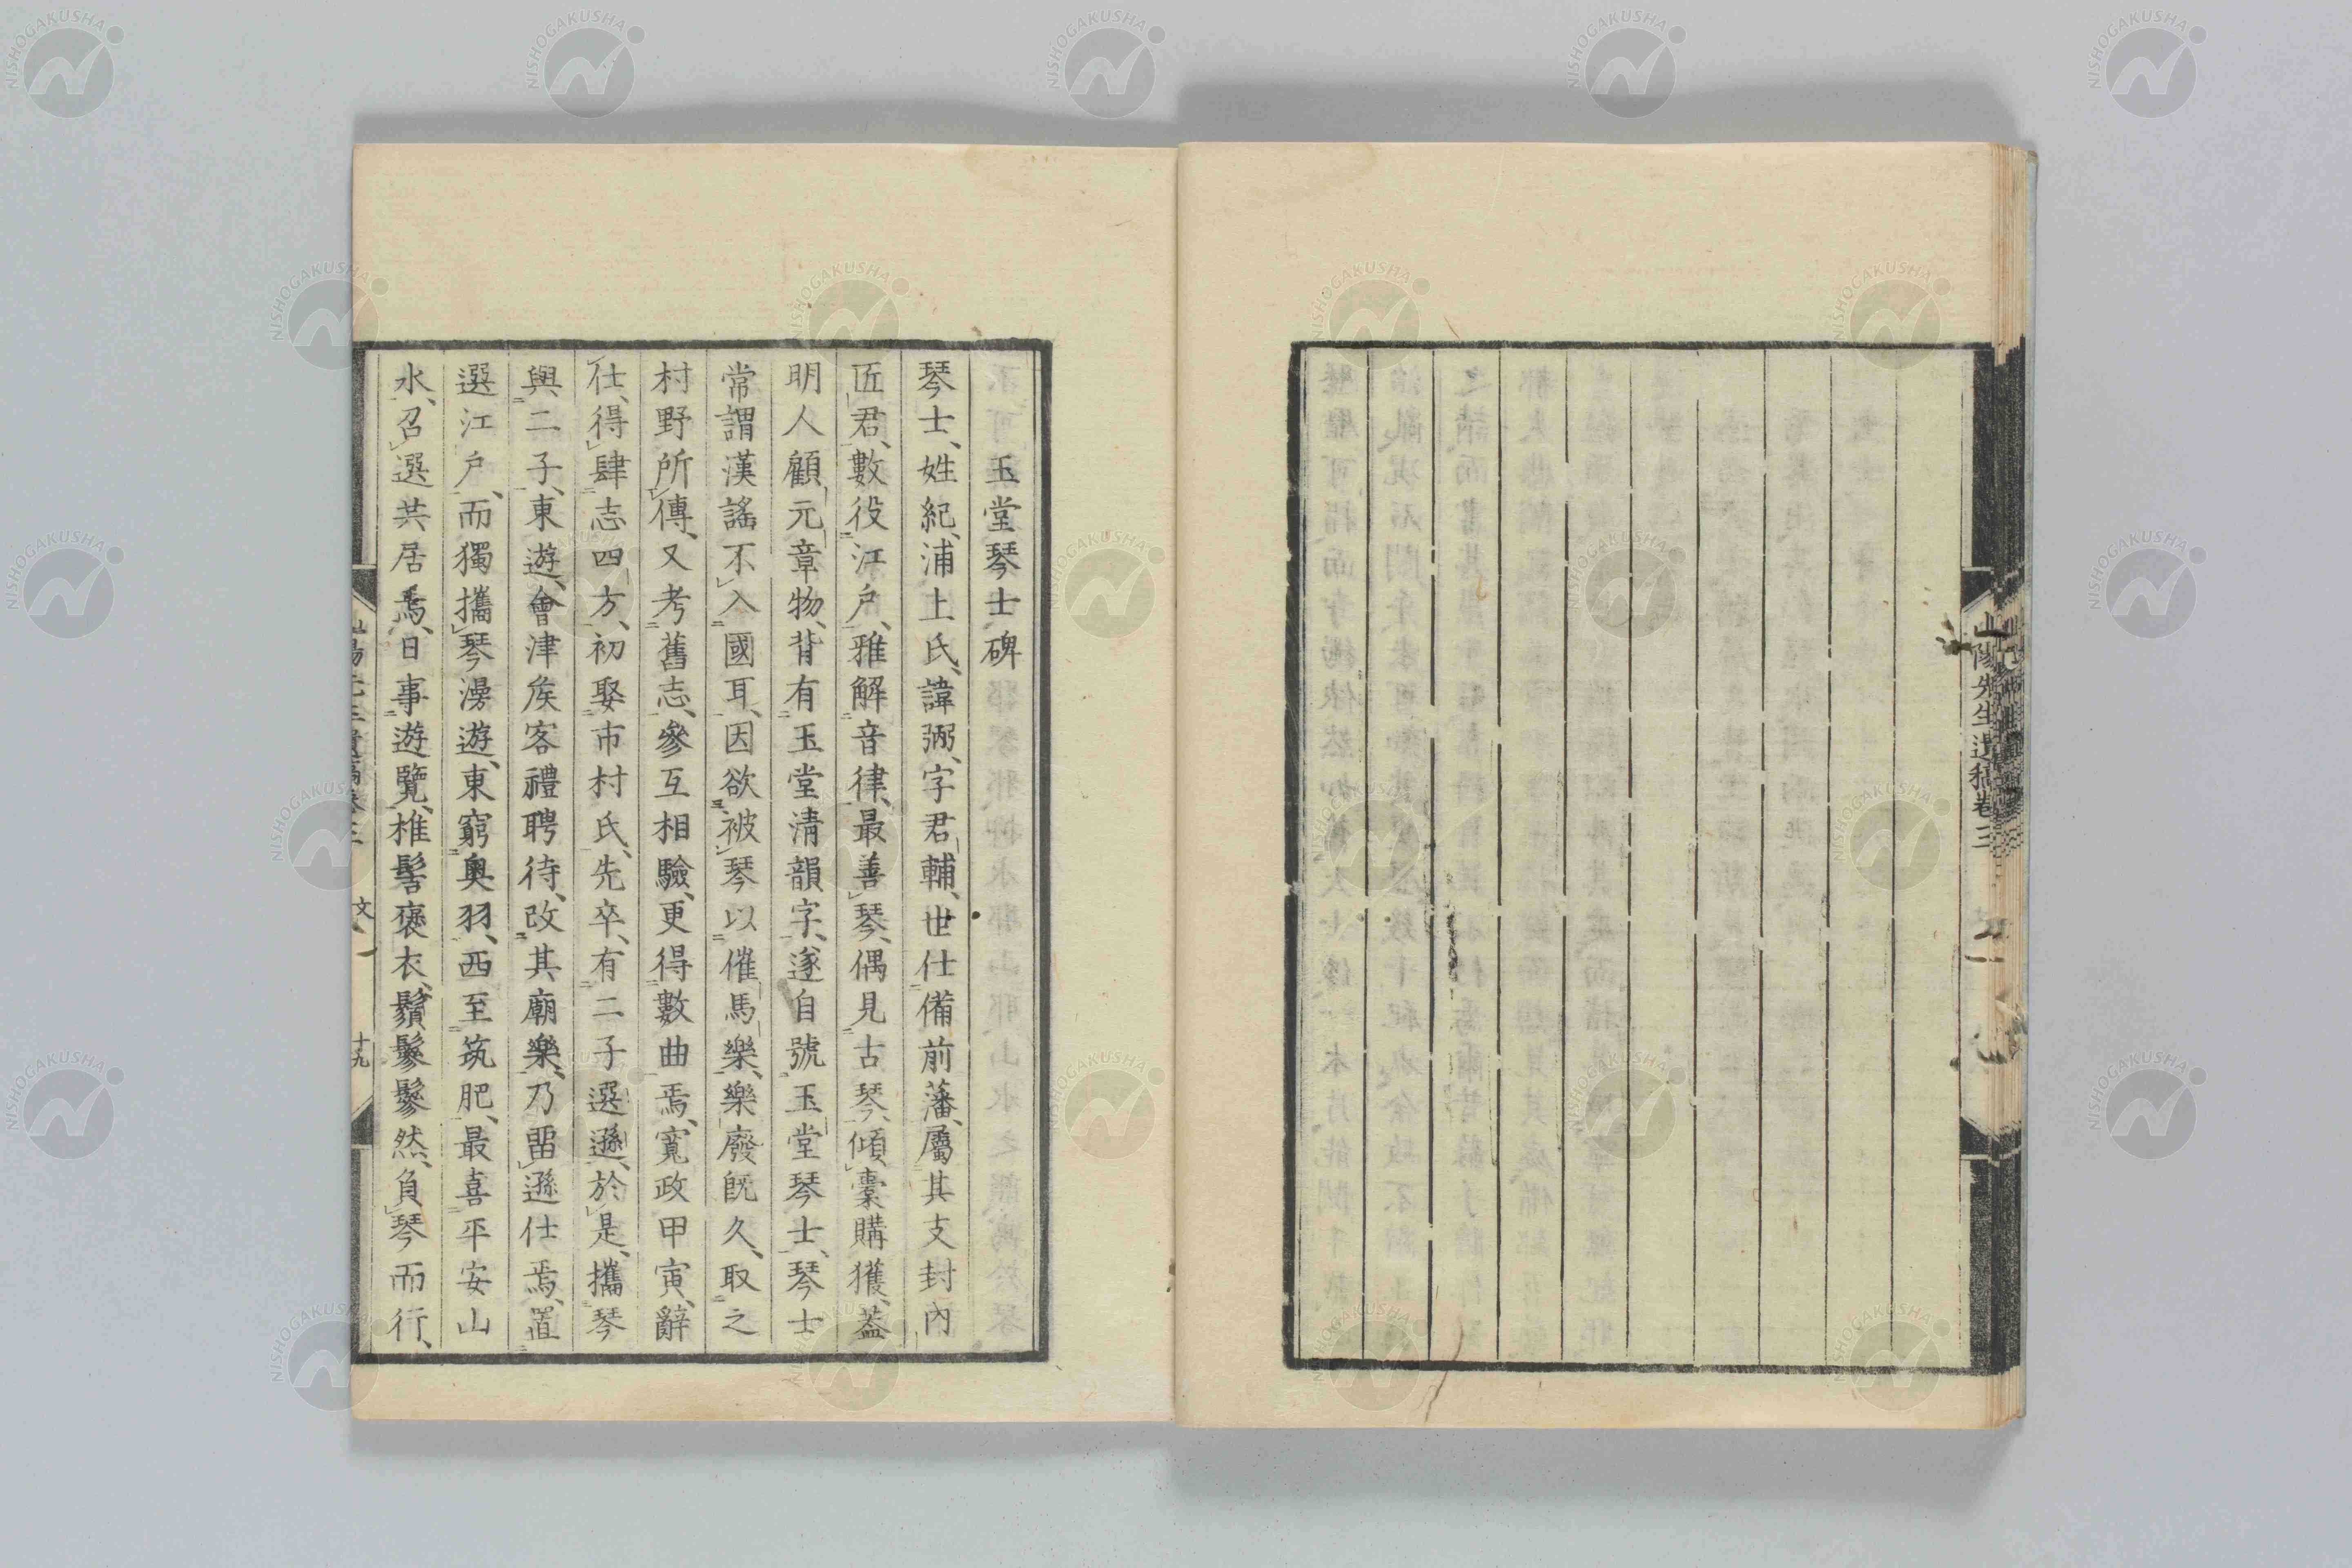 山陽先生遺稿卷三
玉堂琴士碑
琴士、姓紀、浦上氏、諱弼、字君輔、世仕備前藩、屬其支封內
匠君、數役江戶、雅解音律、最善琴、偶見古琴、傾囊購獲、葢
明人顧元章物、背有玉堂清韻字、遂自號玉堂琴士、琴士
常謂漢謠不入國耳、因欲被琴以催馬樂、樂廢既久、取之
村野所傳、又考舊志、參互相驗、更得數曲焉、寬政甲寅、辭
仕、得肆志四方、初娶市村氏、先卒、有二子選遜、於是、攜琴
與二子、東遊、會津矦客禮聘待、改其廟樂、乃畱遜仕焉、置
選江戶、而獨攜琴漫遊、東窮奥羽、西至筑肥、最喜平安山
水、召選共居焉、日事遊覽、椎髻褒衣、鬚鬖鬖然、負琴而行、
文
十九
NISHOGAKUSHA